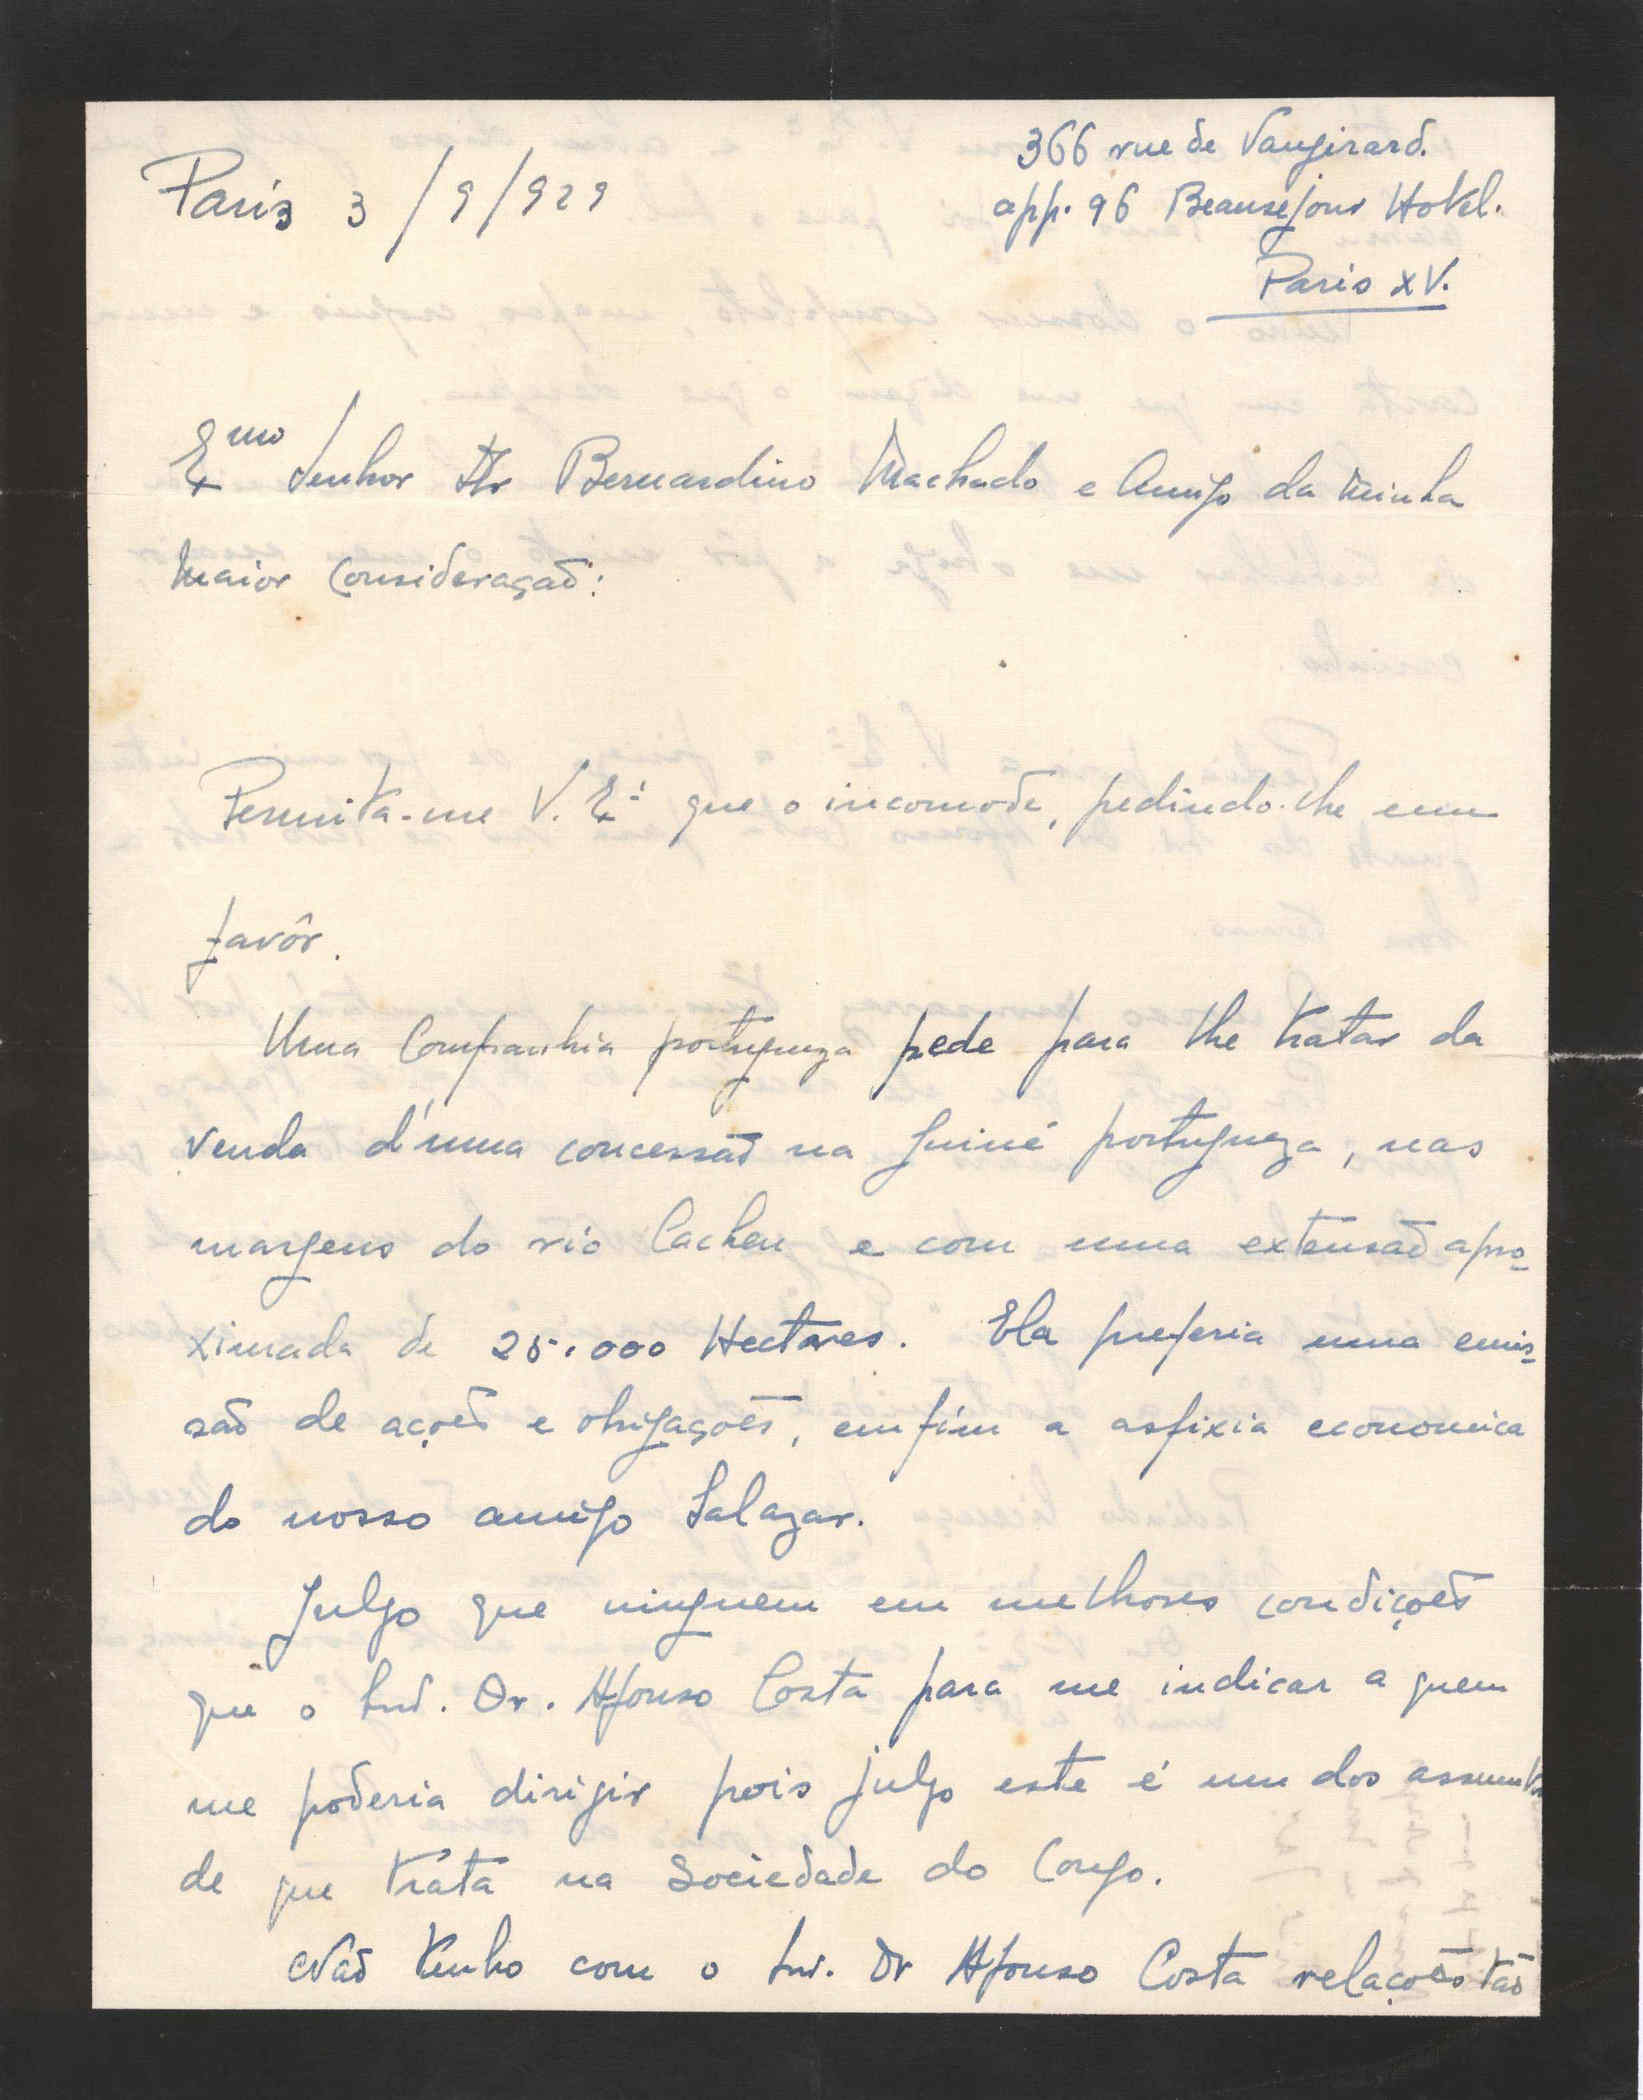 366 rue de Vaugirard.
app. 96 Beauséjour Hotel.
Paris XV.
Paris 3/9/929
Exmo Senhor Dr Bernardino Machado e Amigo da Minha
Maior Consideraçaõ:
Permita-me V. Exª que o incomode, pedindo-lhe um
favôr.
Uma Companhia portugueza pede para lhe tratar da
venda d'uma concessaõ na Guiné portugueza, nas
margens do rio Cacheu e com uma extensaõ apro-
ximada de 25.000 Hectares. Ela preferia uma emis-
saõ de açoẽs e obrigaçoẽs, emfim a asfixia economica
do nosso amigo Salazar.
Julgo que ninguem em melhores condiçoẽs
que o Snr. Dr. Afonso Costa para me indicar a quem
me poderia dirigir pois julgo este é um dos assuntos
de que trata na Sociedade do Congo.
Naõ tenho com o Snr. Dr Afonso Costa relaçoẽs taõ